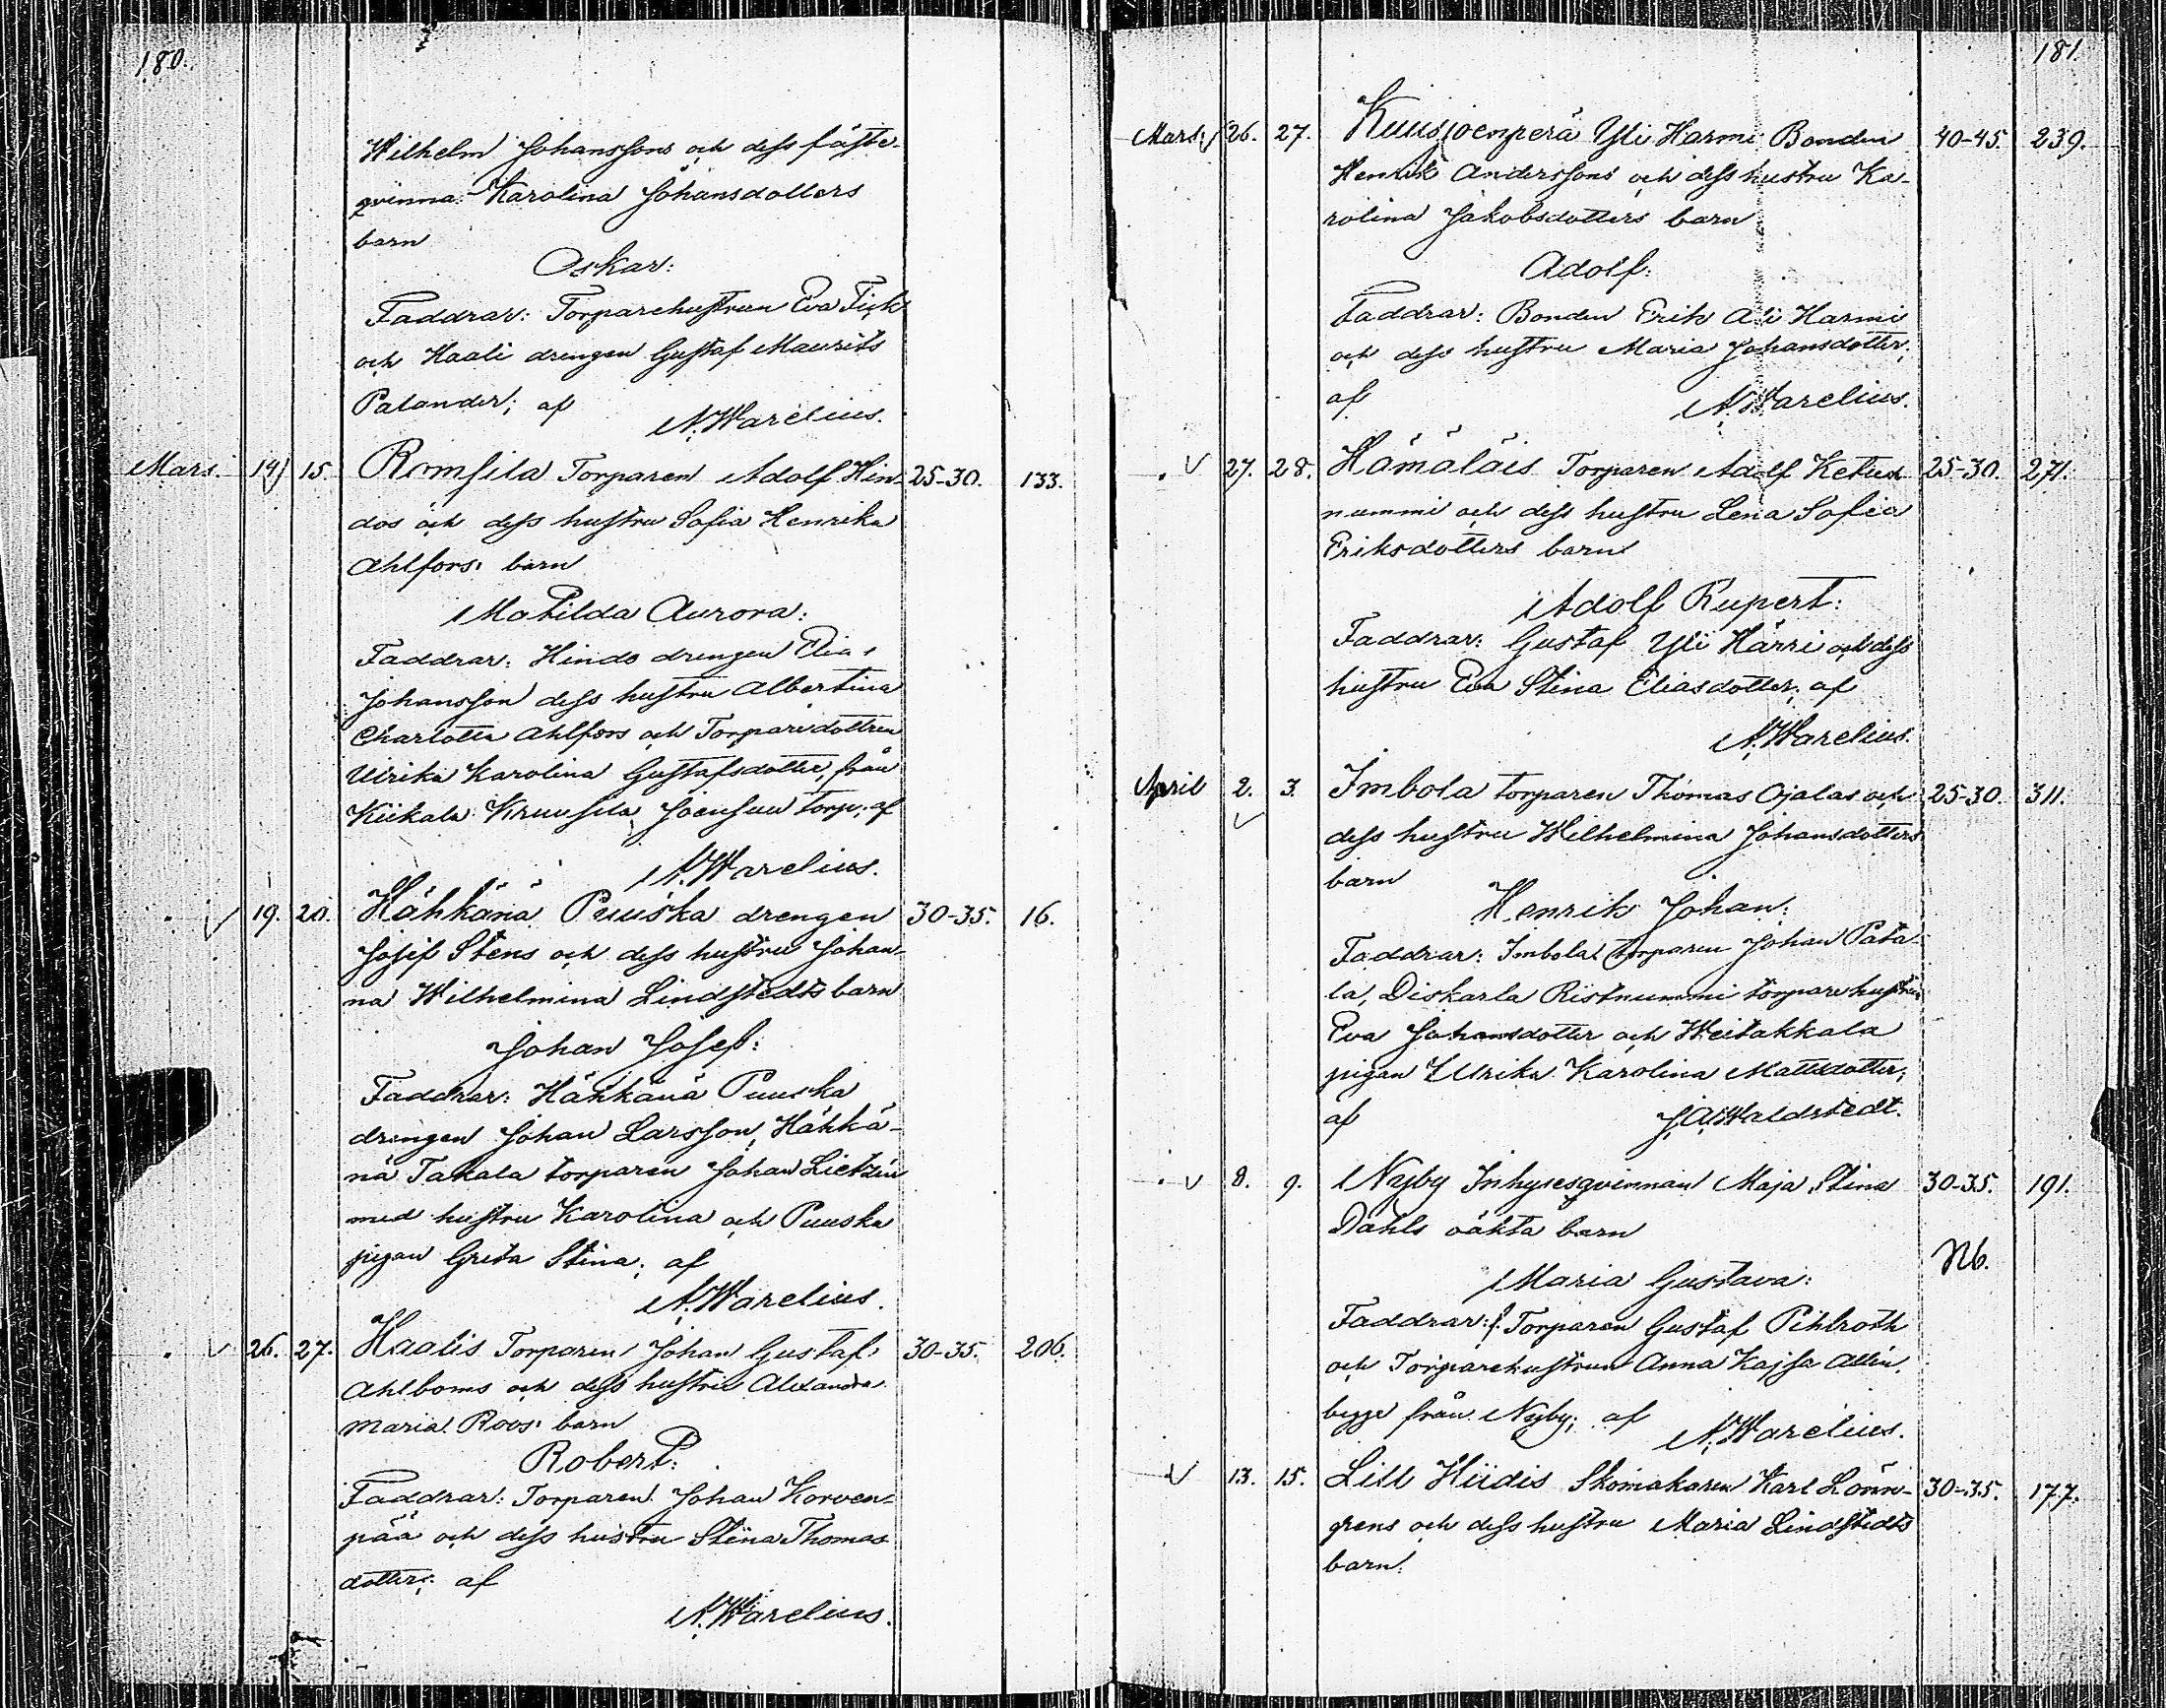 180.
Wilhelm Johanssons och dess fäste-
qvinna Karolina Johansdotters
barn
Oskar:
Faddrar: Torparehustrun Eva Fick
och Haali drengen Gustaf Maurits
Palander; af
A. Warelius.
Mars. 14 15. Romsila Torparen Adolf Hin- 25-30. 133.
dos och dess hustru Sofia Henrika
Ahlfors barn
Matilda Aurora:
Faddrar: Hindo drengen Elias
Johansson dess hustru Albertina
Charlotta Ahlfors och Torparedottren
Ulrika Karolina Gustafsdotter, från
Kiikala Joensuu torp; af
A. Warelius.
19. 20. Hähkänä Puuska drengen 30-35. 16.
Josef Stens och dess hustru Johan-
na Wilhelmina Lindstedts barn
Johan Josef:
Faddrar: Hähkänä Puuska
drengen Johan Larsson, Hähkä-
nä Takala torparen Johan Lietzén
med hustru Karolina och Puuska
pigan Greta Stina; af
A. Warelius.
26. 27. Haalis Torparen Johan Gustaf 30-35. 206.
Ahlboms och dess hustru Alexandra
Maria Roos barn
Robert:
Faddrar: Torparen Johan Korven-
pää och dess hustru Stina Thomas
dotter; af
A. Warelius.
181.
Mars 26. 27. Kuusjoenperä Yli Harmi Bonden 40-45. 239.
Henrik Anderssons och dess hustru Ka-
rolina Jakobsdotters barn
Adolf:
Faddrar: Bonden Erik Ali Harmi
och dess hustru Maria Johansdotter;
af
A. Warelius.
27. 28. Hämäläis Torparen Adolf Ketun 25-30. 271.
nummi och dess hustru Lena Sofia
Eriksdotters barn
Adolf Rupert:
Faddrar: Gustaf Yli Härri och dess
hustru Eva Stina Eliasdotter; af
A. Warelius.
April 2. 3. Imbola torparen Thomas Ojalas och 25-30. 311.
dess hustru Wilhelmina Johansdotters
barn
Henrik Johan:
Faddrar: Imbola torparen Johan Pata-
la, Diskarla Ristnummi torparehustrun
Eva Johansdotter och Weitakkala
pigan Ulrika Karolina Mattsdotter;
af
J. A. Waldstedt.
8. 9. Nyby Inhysesqvinnan Maja Stina 30-35. 191.
Dahls oäkta barn
Nb.
Maria Gustava:
Faddrar: Torparen Gustaf Pihlroth
och Torparehustrun Anna Kajsa Allén,
begge från Nyby; af
A. Warelius.
13. 15. Lill Hiidis Skomakaren Karl Lönn- 30-35. 177.
grens och dess hustru Maria Lindstedts
barn: